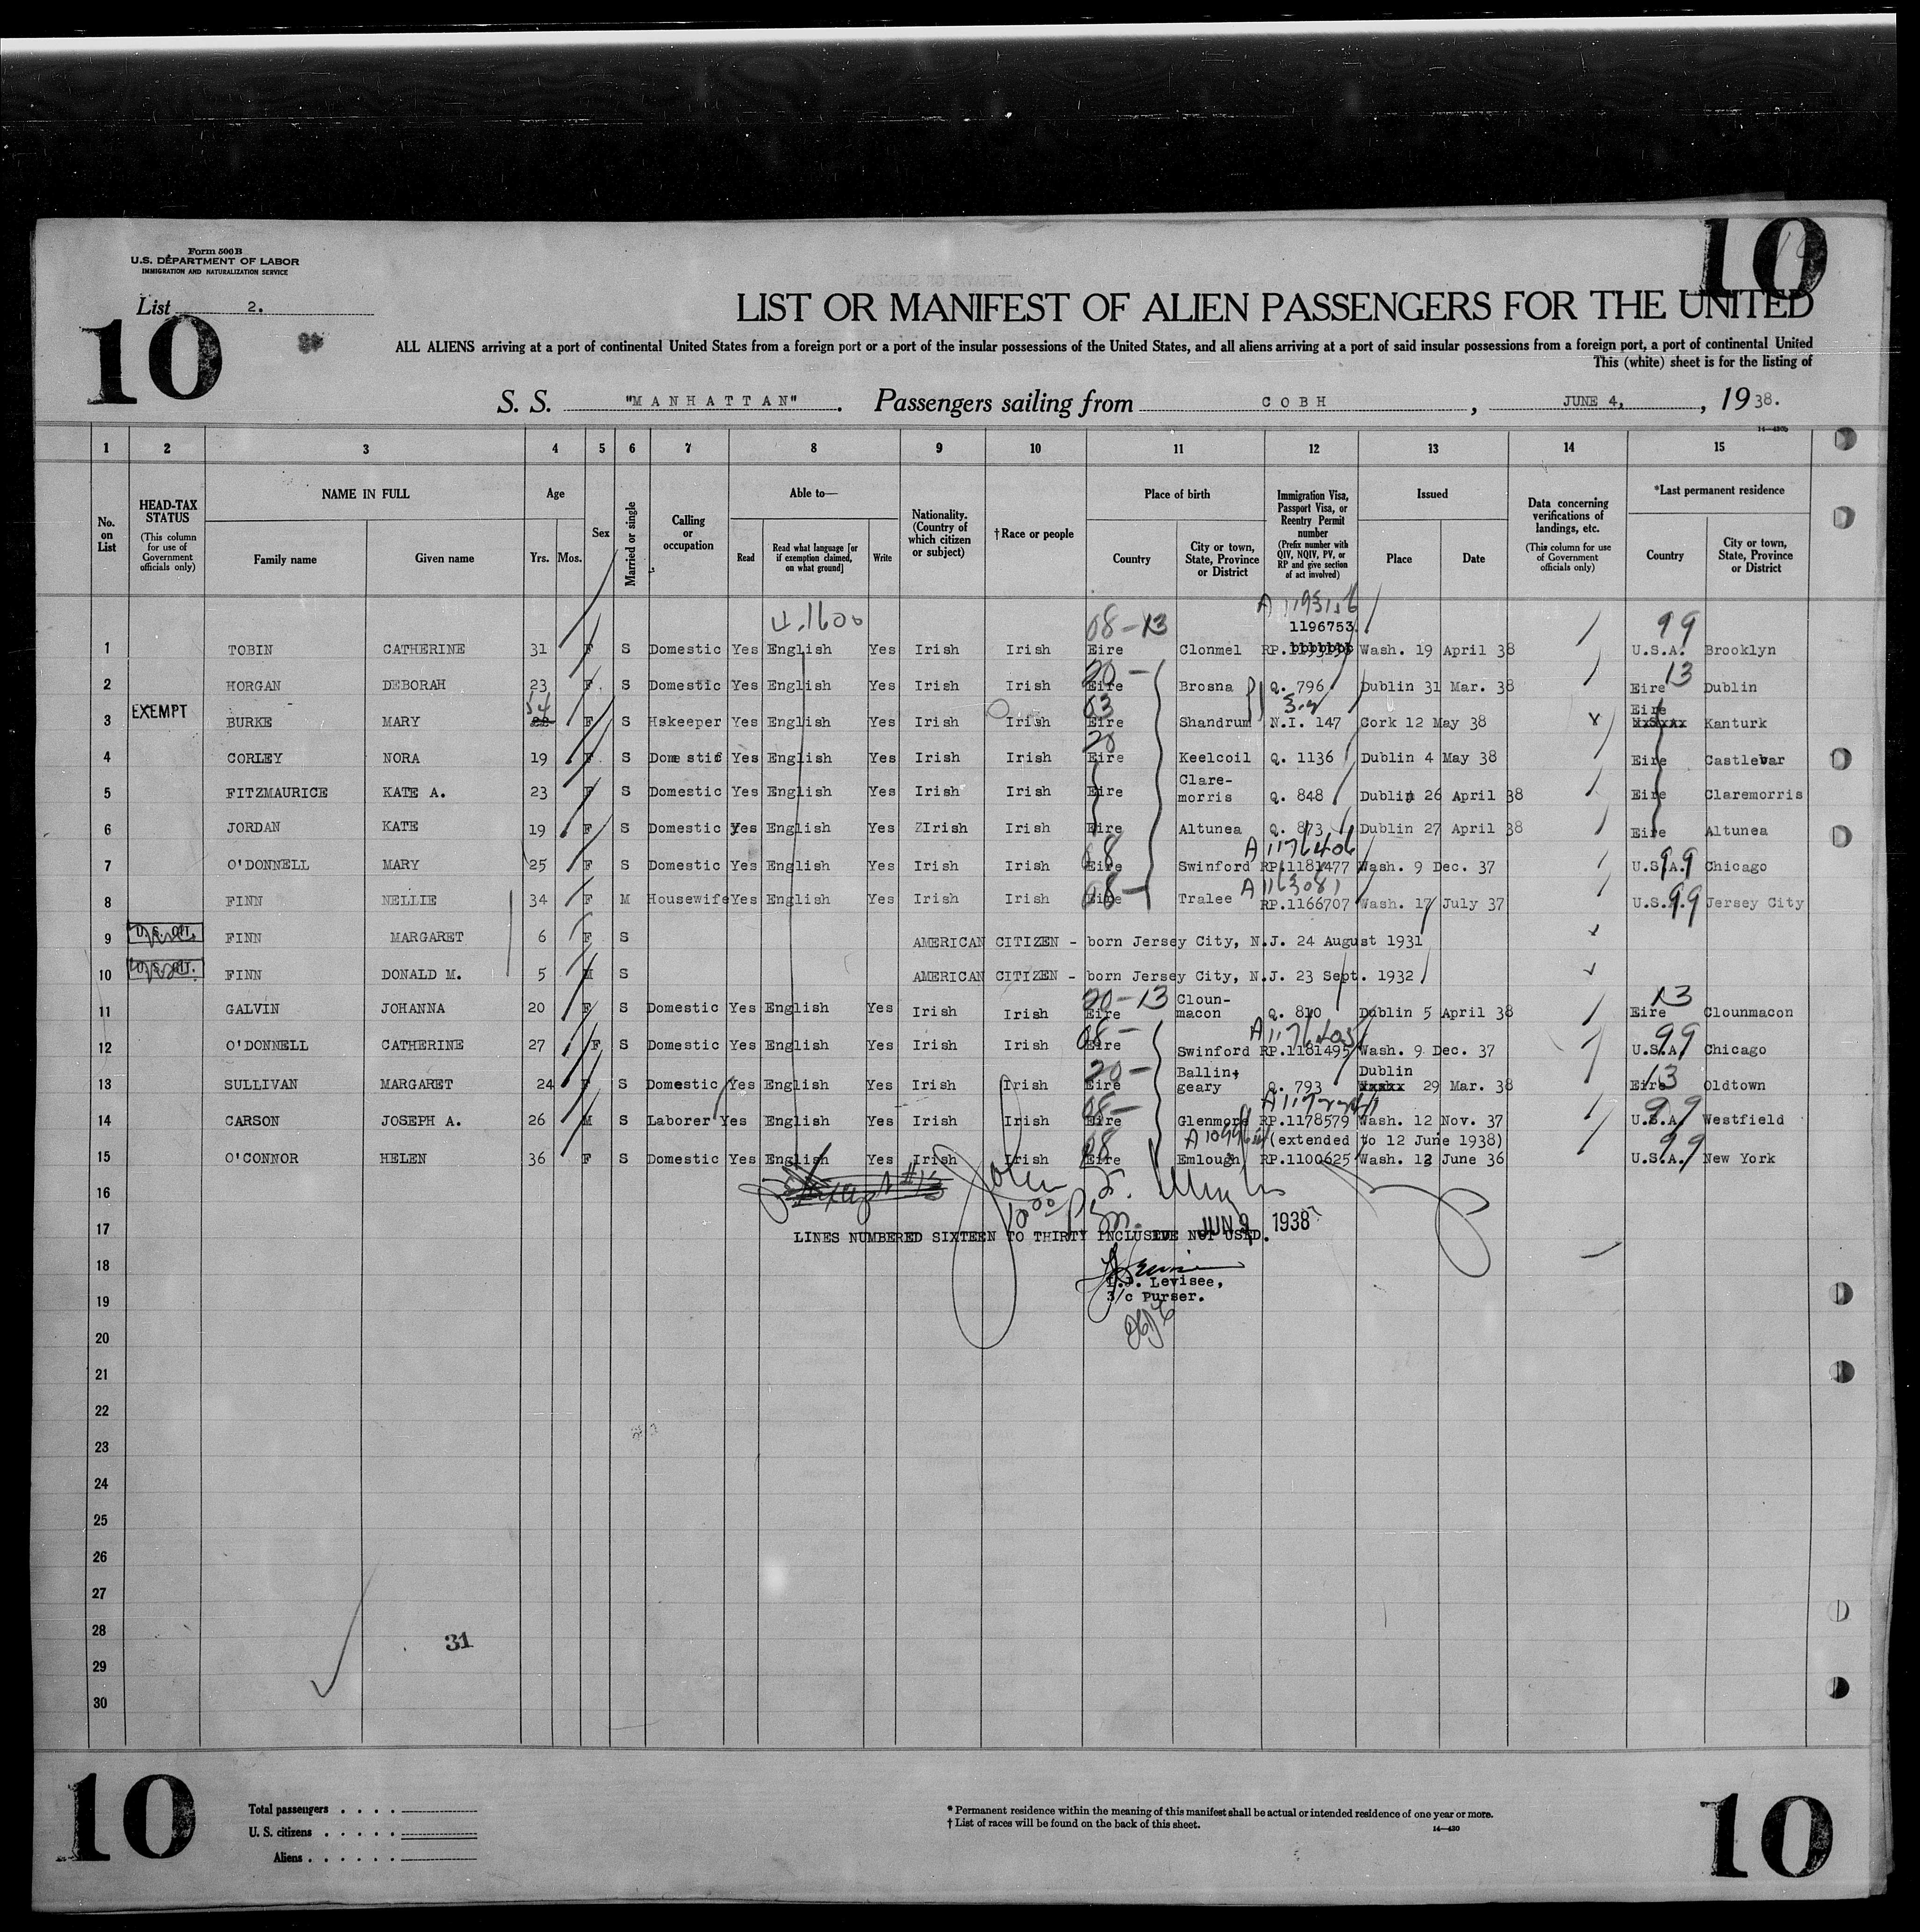 Form 500B
U.S. DEPARTMENT OF LABOR
IMMIGRATION AND NATURALIZATION SERVICE
List 2.
10
10
LIST OR MANIFEST OF ALIEN PASSENGERS FOR THE UNITED
ALL ALIENS arriving at a port of continental United States from a foreign port or a port of the insular possessions of the United States, and all aliens arriving at a port of said insular possessions from a foreign port, a port of continental United
This (white) sheet is for the listing of
S. S. "MANHATTAN". Passengers sailing from COBH, JUNE 4, 1938.
1 2 3 4 5 6 7 8 9 10 11 12 13 14 15
No. on List
HEAD-TAX STATUS (This column for use of Government officials only)
NAME IN FULL Family name Given name
Age Yrs. Mos.
Sex
Married or single
Calling or occupation
Able to— Read Read what language [or if exemption claimed, on what ground] Write
Nationality. (Country of which citizen or subject)
†Race or people
Place of birth Country City or town, State, Province or District
Immigration Visa, Passport Visa, or Reentry Permit number (Prefix number with QIV, NQIV, PV, or RP and give section of act involved)
Issued Place Date
Data concerning verifications of landings, etc. (This column for use of Government officials only)
*Last permanent residence Country City or town, State, Province or District
08-13 1196753. 99
1 TOBIN CATHERINE 31 F S Domestic Yes English Yes Irish Irish Eire Clonmel RP. Wash. 19 April 38 U.S.A. Brooklyn
20- 13
2 HORGAN DEBORAH 23 F S Domestic Yes English Yes Irish Irish Eire Brosna Q. 796 Dublin 31 Mar. 38 Eire Dublin
EXEMPT 54 Eire
3 BURKE MARY F S Hskeeper Yes English Yes Irish Irish Eire Shandrum N.I. 147 Cork 12 May 38 Kanturk
4 CORLEY NORA 19 F S Domestic Yes English Yes Irish Irish Eire Keelcoil Q. 1136 Dublin 4 May 38 Eire Castlebar
5 FITZMAURICE KATE A. 23 F S Domestic Yes English Yes Irish Irish Eire Clare-morris Q. 848 Dublin 26 April 38 Eire Claremorris
6 JORDAN KATE 19 F S Domestic Yes English Yes Irish Irish Eire Altunea Q. 873 Dublin 27 April 38 Eire Altunea
08 A1176406
7 O'DONNELL MARY 25 F S Domestic Yes English Yes Irish Irish Eire Swinford RP.1181477 Wash. 9 Dec. 37 U.S.A. 99 Chicago
08- A1163081
8 FINN NELLIE 34 F M Housewife Yes English Yes Irish Irish Eire Tralee RP.1166707 Wash. 17 July 37 U.S.A. 99 Jersey City
9 FINN MARGARET 6 F S AMERICAN CITIZEN - born Jersey City, N.J. 24 August 1931
10 FINN DONALD M. 5 M S AMERICAN CITIZEN - born Jersey City, N.J. 23 Sept. 1932
20-13 13
11 GALVIN JOHANNA 20 F S Domestic Yes English Yes Irish Irish Eire Cloun-macon Q. 810 Dublin 5 April 38 Eire Clounmacon
08- 99
12 O'DONNELL CATHERINE 27 F S Domestic Yes English Yes Irish Irish Eire Swinford RP.1181495 Wash. 9 Dec. 37 U.S.A. Chicago
20- Dublin 13
13 SULLIVAN MARGARET 24 F S Domestic Yes English Yes Irish Irish Eire Ballin-geary Q. 793 29 Mar. 38 Eire Oldtown
08- 99
14 CARSON JOSEPH A. 26 M S Laborer Yes English Yes Irish Irish Eire Glenmore RP.1178579 Wash. 12 Nov. 37 U.S.A. Westfield
08 (extended to 12 June 1938) 99
15 O'CONNOR HELEN 36 F S Domestic Yes English Yes Irish Irish Eire Emlough RP.1100625 Wash. 12 June 36 U.S.A. New York
16
17 LINES NUMBERED SIXTEEN TO THIRTY INCLUSIVE NOT USED. JUN 9 1938
18
L.J. Levisee,
19 3/c Purser.
20
21
22
23
24
25
26
27
28
31
29
30
10
10
Total passengers
U. S. citizens
Aliens
* Permanent residence within the meaning of this manifest shall be actual or intended residence of one year or more.
† List of races will be found on the back of this sheet.
14-430